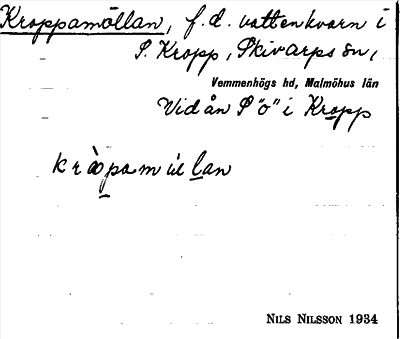 Kroppamöllan, f.d. vattenkvarn i
S. Kropp, Skivarps sn,
Vemmenhögs hd, Malmöhus län
Vid ån S "o" i Kropp
Nils Nilsson 1934